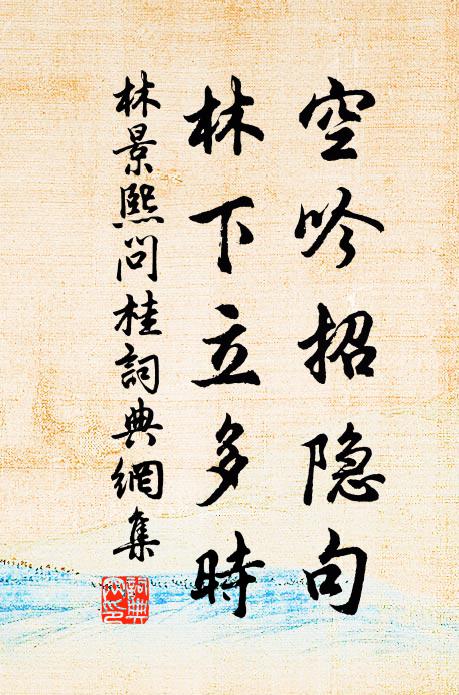 空吟招隐句
林下立多時
林景熙問桂詞典網集